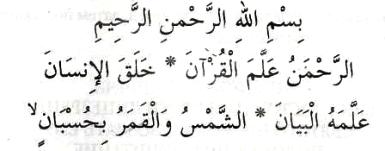 بِسْمِ اللهِ الرَّحْمنِ الرَّحِيمِ
الرَّحْمَنُ عَلَّمَ الْقُرْآنَ * خَلَقَ الإِنسَانَ
عَلَّمَهُ الْبَيَانَ * الشَّمْسُ وَالْقَمَرُ بِحُسْبَانٍ ۙ